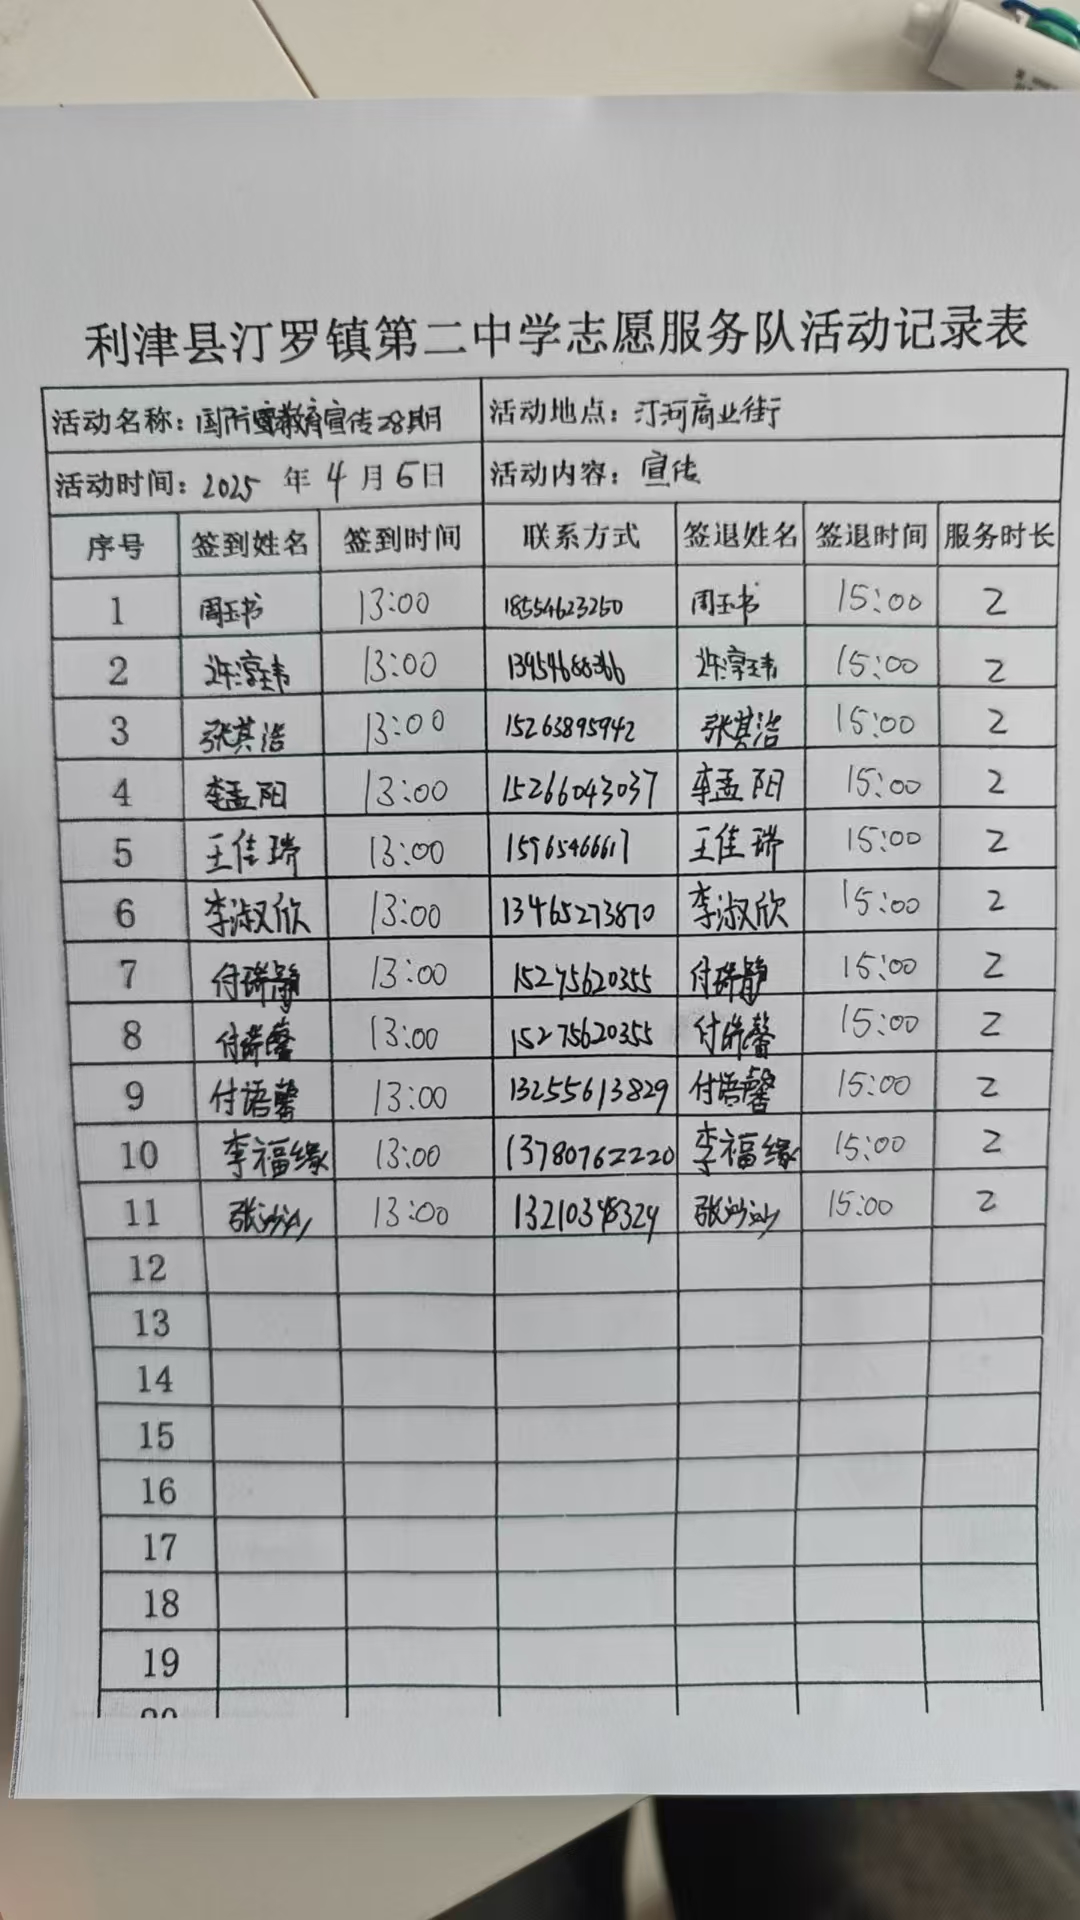 利津县汀罗镇第二中学志愿服务队活动记录表
活动名称：国防教育宣传28期 活动地点：汀河商业街
活动时间：2025 年 4 月 6 日 活动内容：宣传
序号 签到姓名 签到时间 联系方式 签退姓名 签退时间 服务时长
1 周玉书 13:00 18554623250 周玉书 15:00 2
2 许淳玮 13:00 13954688366 许淳玮 15:00 2
3 张其浩 13:00 15263895942 张其浩 15:00 2
4 李孟阳 13:00 15266043037 李孟阳 15:00 2
5 王佳瑞 13:00 15965466617 王佳瑞 15:00 2
6 李淑欣 13:00 13465273870 李淑欣 15:00 2
7 付瑞静 13:00 15275620355 付瑞静 15:00 2
8 付馨 13:00 15275620355 付馨 15:00 2
9 付语馨 13:00 13255613829 付语馨 15:00 2
10 李福缘 13:00 13780762220 李福缘 15:00 2
11 张沙沙 13:00 13210348329 张沙沙 15:00 2
12
13
14
15
16
17
18
19